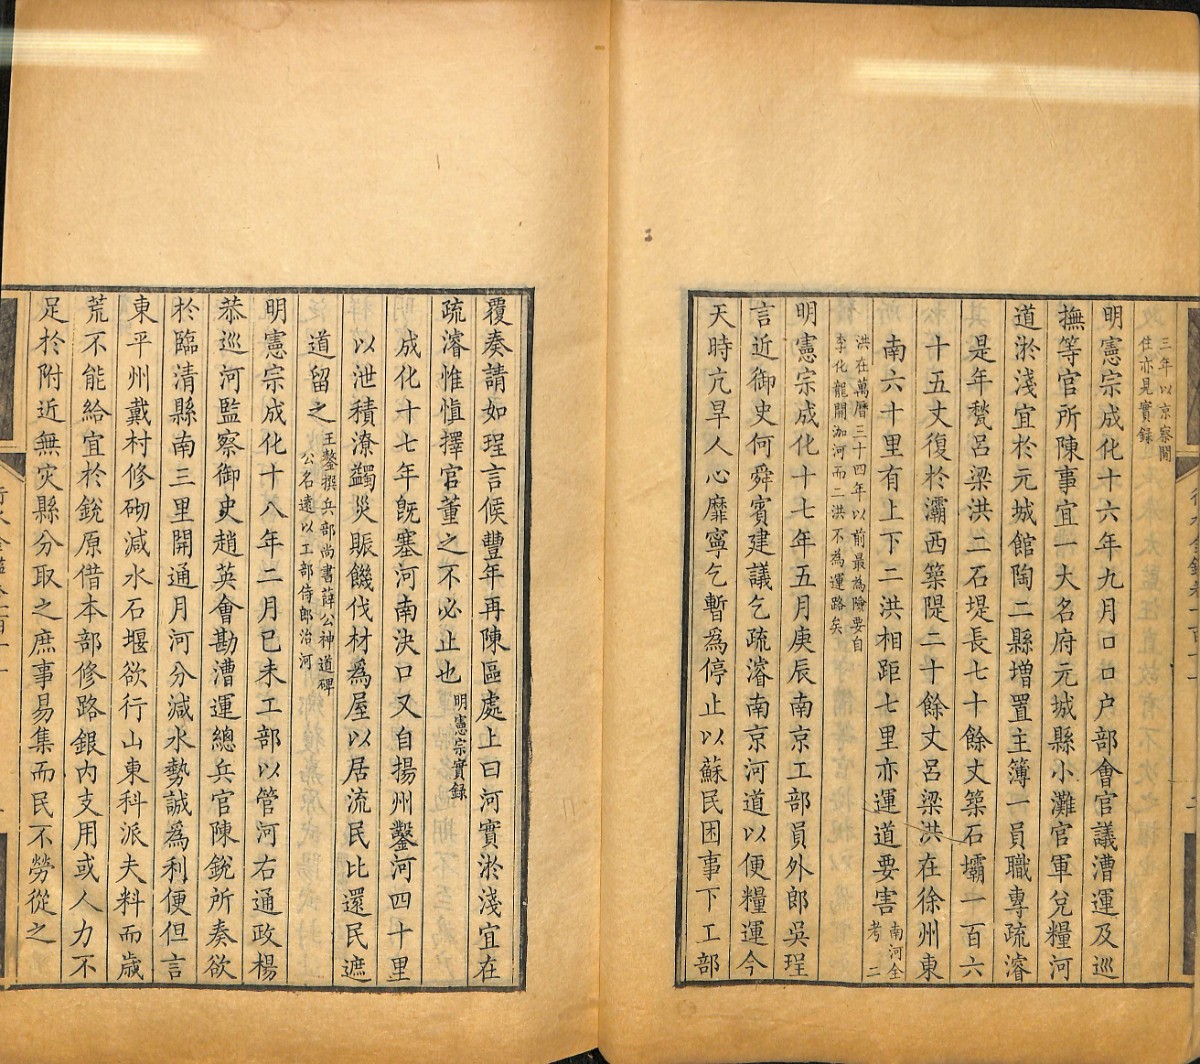 三年以京察閒
住亦見實錄
明憲宗成化十六年九月口口户部會官議漕運及巡
撫等官所陳事宜一大名府元城縣小灘官軍兌糧河
道淤淺宜於元城館陶二縣增置主簿一員職專疏濬
是年甃呂梁洪二石堤長七十餘丈築石壩一百六
十五丈復於灞西築隄二十餘丈呂梁洪在徐州東
南六十里有上下二洪相距七里亦運道要害南河全
考二
洪在萬曆三十四年以前最為險要自
李化龍開泇河而二洪不為運路矣
明憲宗成化十七年五月庚辰南京工部員外郎吳珵
言近御史何舜賓建議乞疏濬南京河道以便糧運今
天時亢旱人心靡寧乞暫為停止以蘇民困事下工部
覆奏請如珵言候豐年再陳區處上曰河實淤淺宜在
疏濬惟慎擇官董之不必止也明憲宗實錄
成化十七年旣塞河南決口又自揚州鑿河四十里
以泄積潦蠲災賑饑伐材為屋以居流民比還民遮
道留之王鏊撰兵部尚書薛公神道碑
公名遠以工部侍郎治河
明憲宗成化十八年二月已未工部以管河右通政楊
恭巡河監察御史趙英會勘漕運總兵官陳銳所奏欲
於臨清縣南三里開通月河分減水勢誠為利便但言
東平州戴村修砌減水石堰欲行山東科派夫料而歲
荒不能給宜於銳原借本部修路銀内支用或人力不
足於附近無災縣分取之庶事易集而民不勞從之